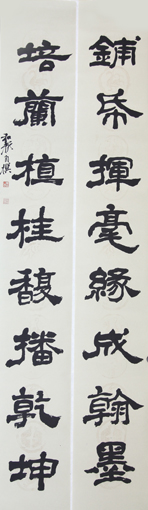 鋪帋揮毫緣成翰墨
培蘭植桂馥播乾坤
自撰